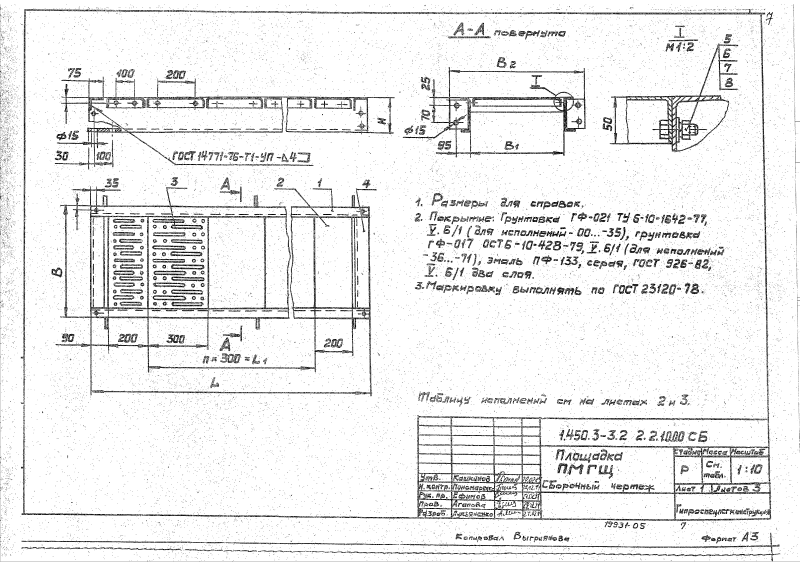 7
А-А повернута
I
М1:2
5
6
7
8
75
100
200
H
Ф15
30
100
ГОСТ 14771-76-Т1-УП-Δ4
В2
25
70
Ф15
95
В1
I
50
35
3
А
2
1
4
В
90
200
300
А
200
n × 300 = L1
L
1. Размеры для справок.
2. Покрытие: Грунтовка ГФ-021 ТУ 6-10-1642-77,
V. Б/1 (для исполнений - 00...-35), грунтовка
ГФ-017 ОСТ 6-10-428-79, V. Б/1 (для исполнений
-36...-71), эмаль ПФ-133, серая, ГОСТ 926-82,
V. Б/1 два слоя.
3. Маркировку выполнять по ГОСТ 23120-78.
Таблицу исполнений см на листах 2 и 3.
1.450.3-3.2 2.2.1.0.00 СБ
Площадка
ПМГЩ
Сборочный чертеж
Стадия Масса Масштаб
Р См. табл. 1:10
Лист 1 Листов 3
Гипроспецлегконструкция
Утв. Кашкинов
Н. контр. Пономаренко
Рук. пр. Ефимов
Пров. Агапова
Разраб. Лукьяненко
19931-05 7
Копировал Выгриянова
Формат А3